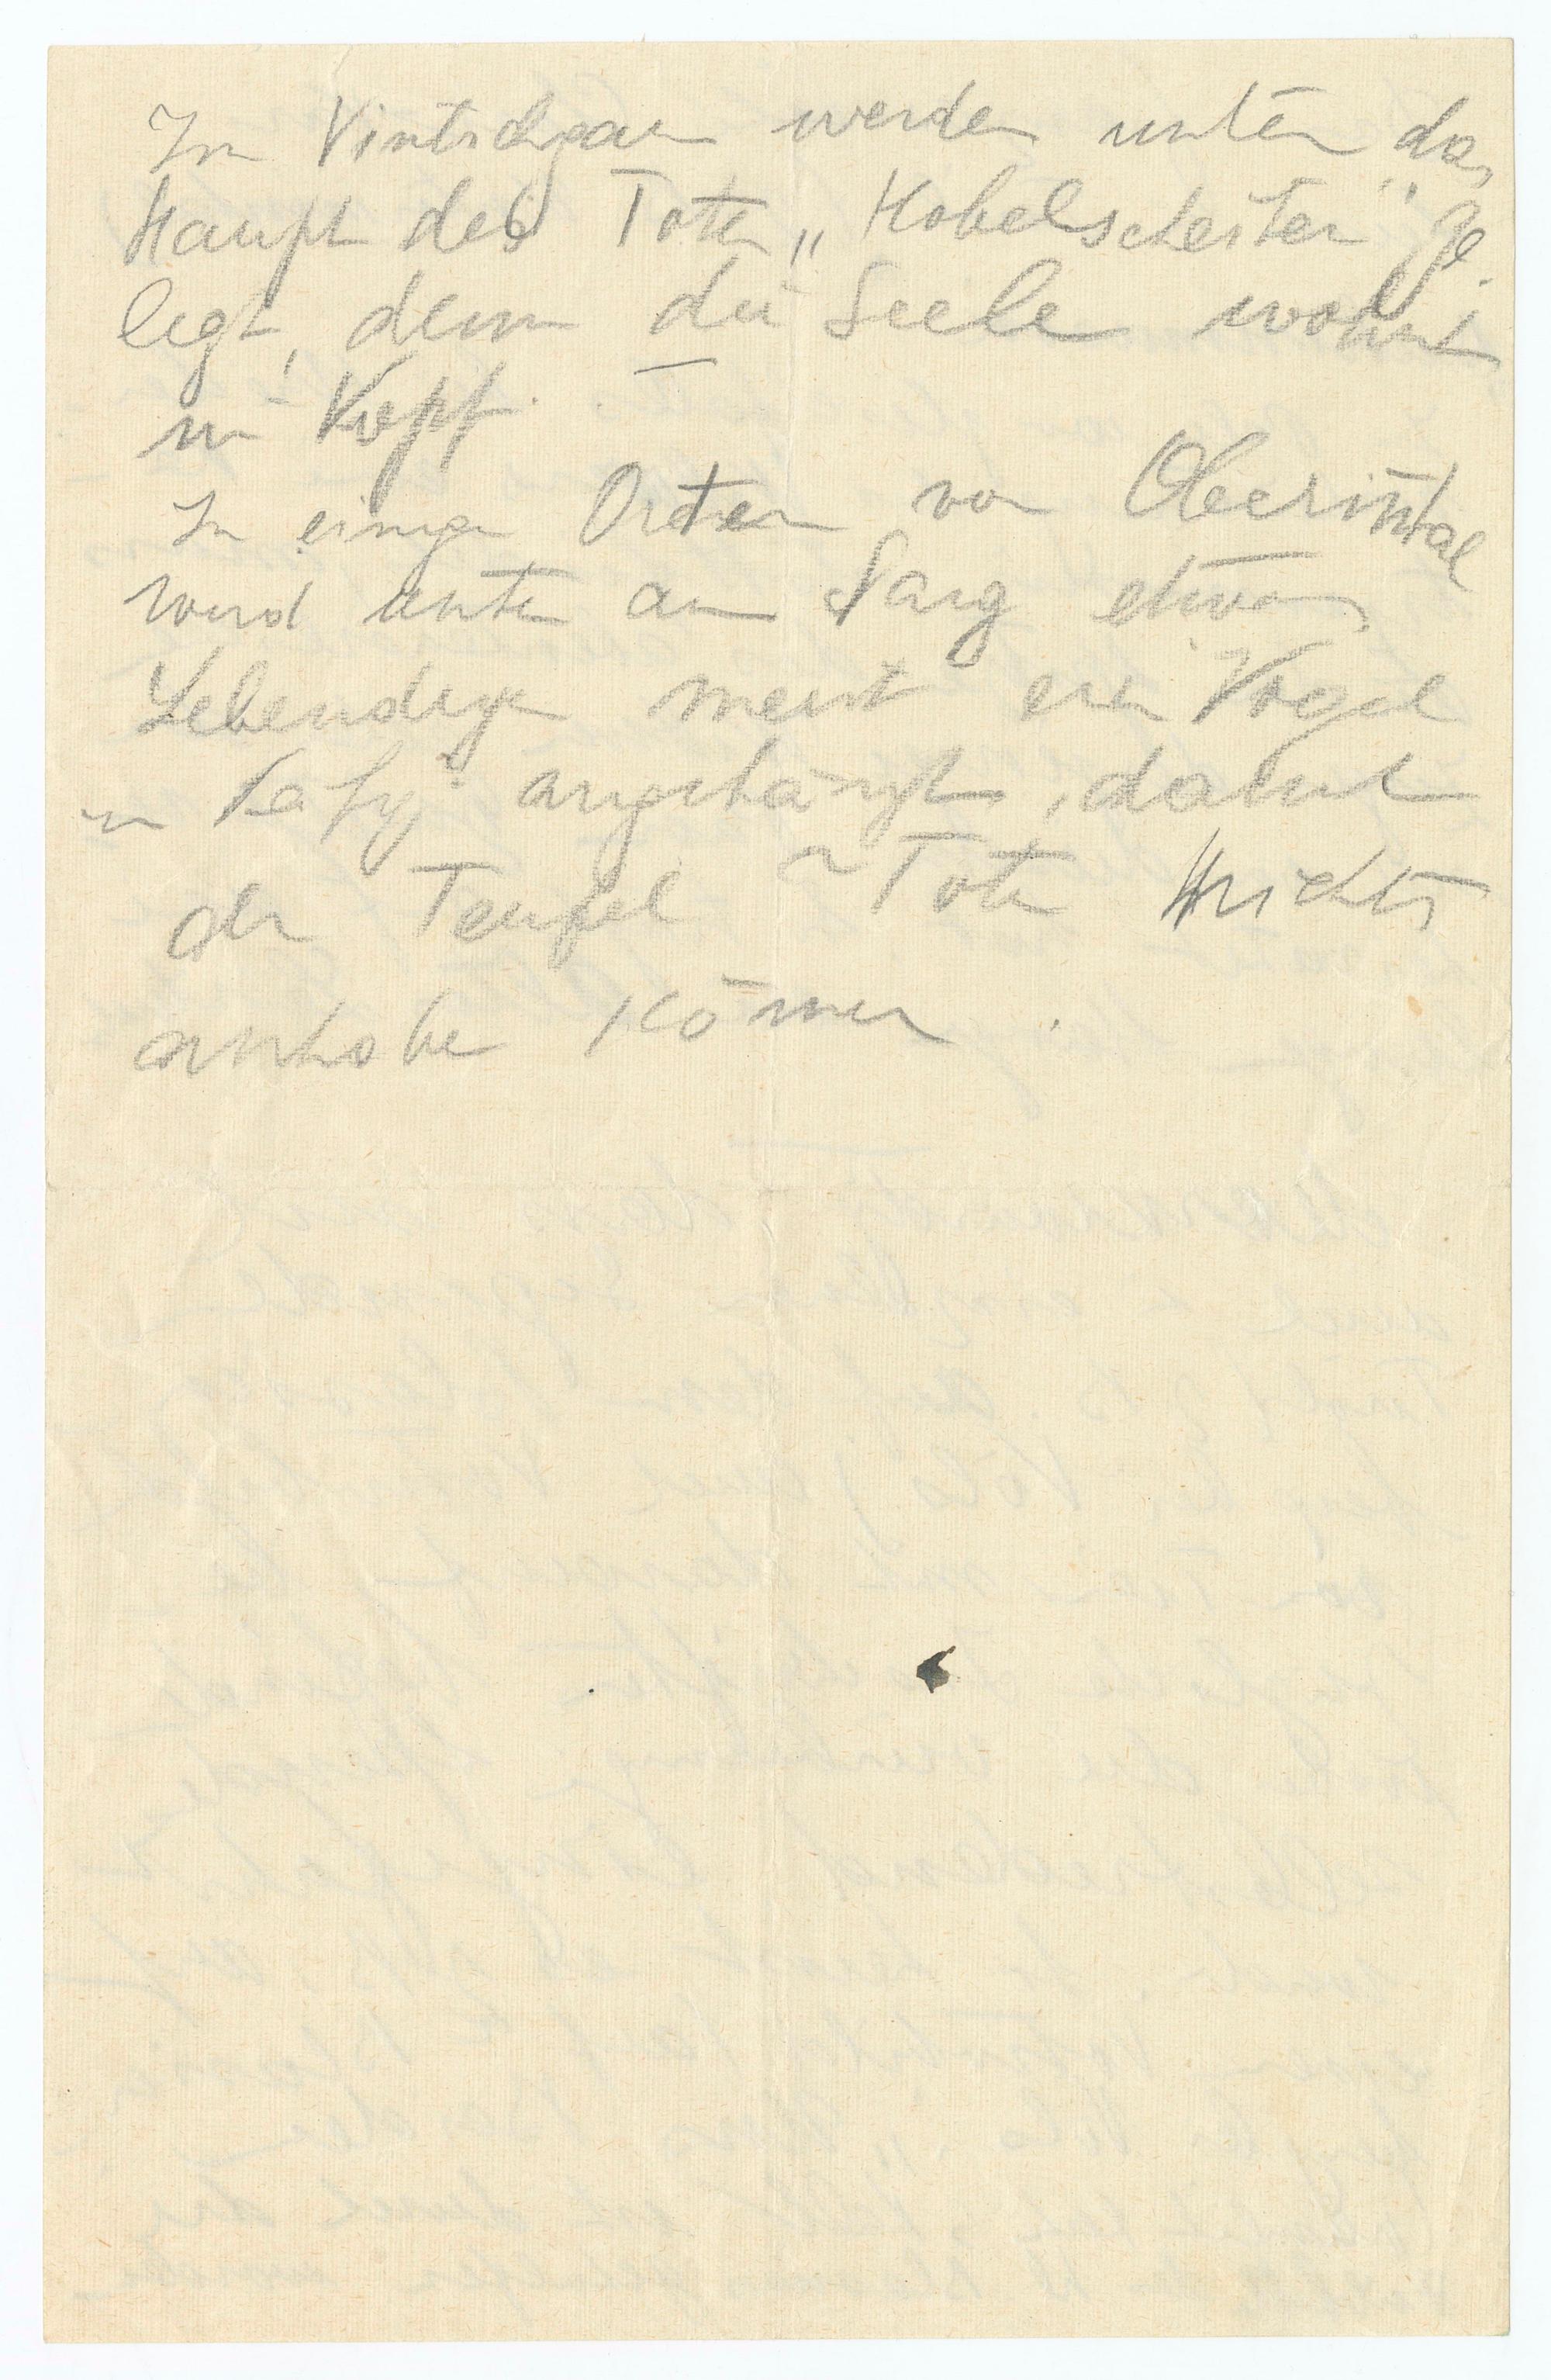 Im Vintschgau werden unter das
Haupt des Toten „Hobelscheiter" ge-
legt, denn die Seele wohnt
im Kopf.
In einigen Orten von Oberinntal
wird unten am Sarg etwas
Lebendiges meist ein Vogel
im Käfig angehängt, damit
der Teufel Toten nichts
anhaben können.